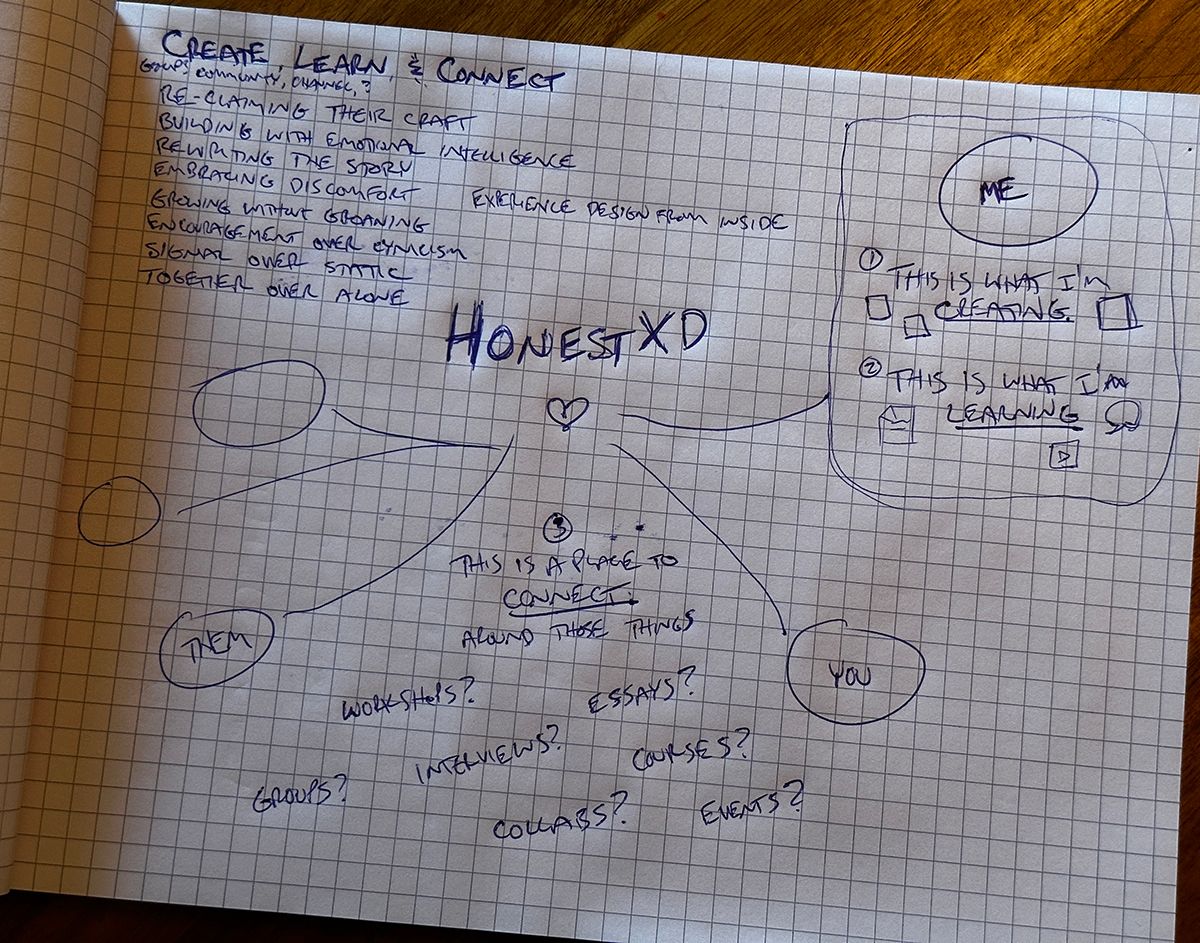 CREATE, LEARN, & CONNECT
GROUPS, COMMUNITY, CHANNEL, ?
RE-CLAIMING THEIR CRAFT
BUILDING WITH EMOTIONAL INTELLIGENCE
REWRITING THE STORY
EMBRACING DISCOMFORT
EXPERIENCE DESIGN FROM INSIDE
GROWING WITHOUT GROANING
ENCOURAGEMENT OVER CYNICISM
SIGNAL OVER STATIC
TOGETHER OVER ALONE
HONESTXD
ME
① THIS IS WHAT I'M
CREATING.
② THIS IS WHAT I'M
LEARNING
③
THIS IS A PLACE TO
CONNECT.
AROUND THOSE THINGS
THEM
YOU
WORKSHOPS?
ESSAYS?
INTERVIEWS?
COURSES?
GROUPS?
COLLABS?
EVENTS?